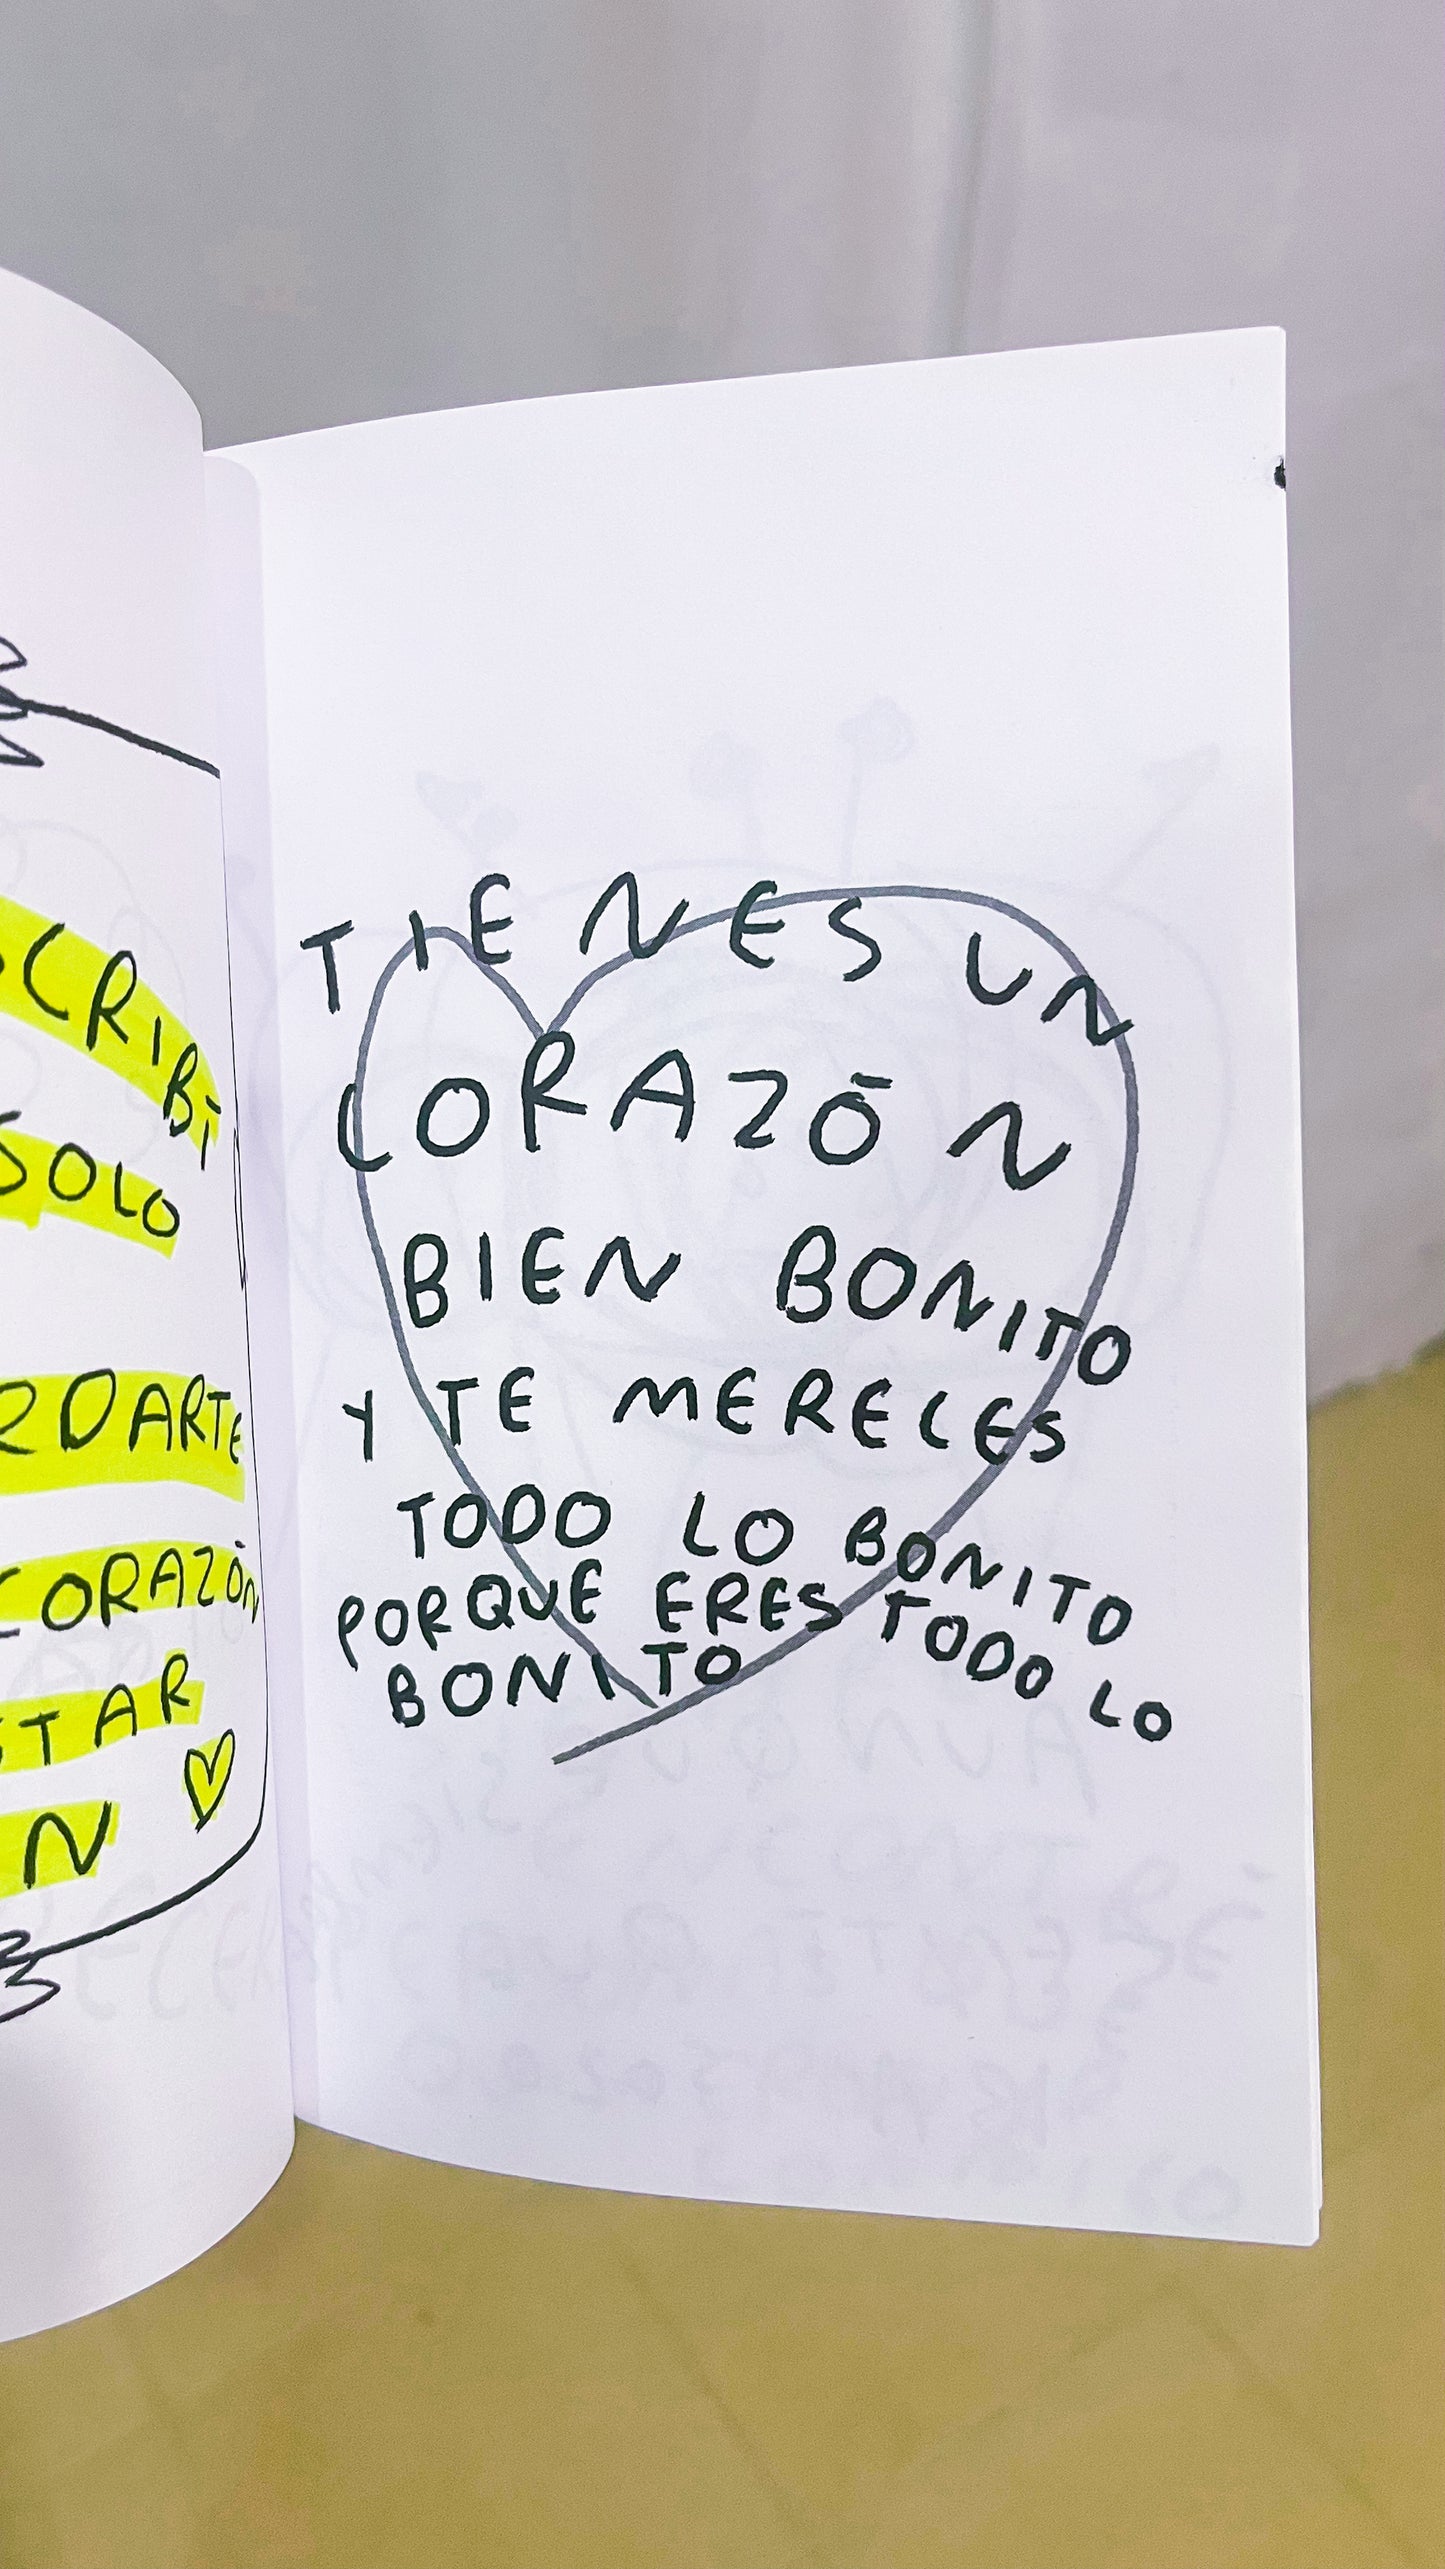 SOLO
CORAZÓN
N
TIENES UN
CORAZÓN
BIEN BONITO
Y TE MERECES
TODO LO BONITO
PORQUE ERES TODO LO
BONITO